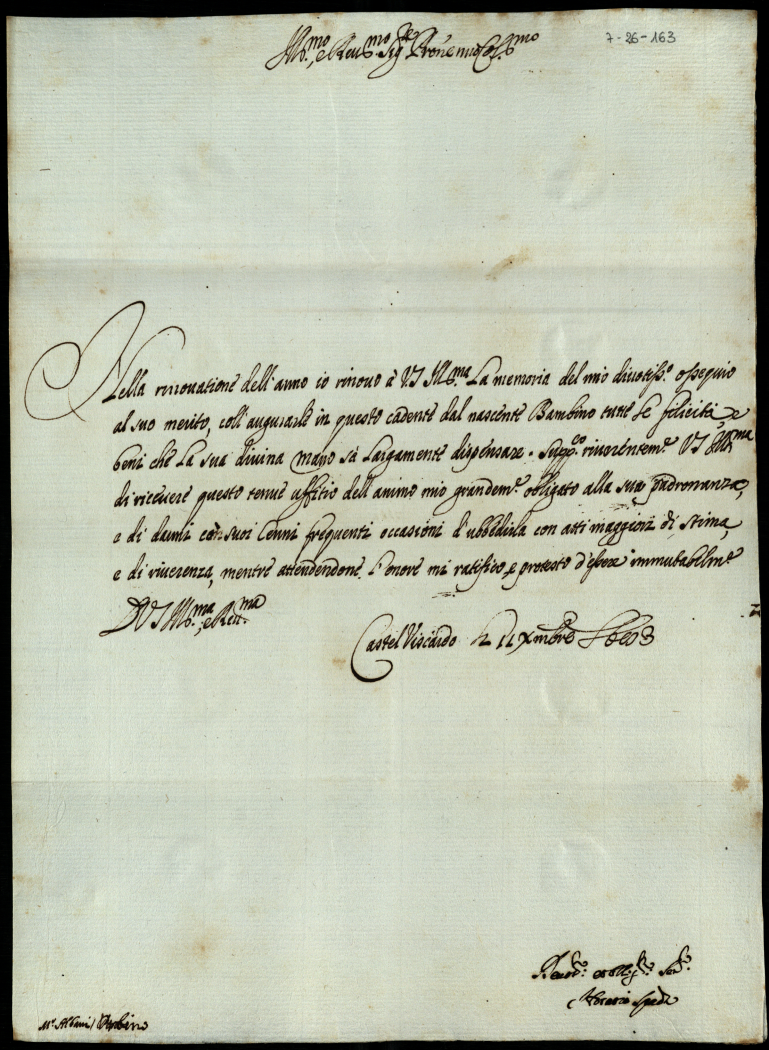 7-26-163
Ill.mo, e Reu.mo Sig.re Prone mio Col.mo
Nella rinouatione dell'anno io rinouo à VS Ill.ma La memoria del mio diuotiss.o ossequio
al suo merito, coll'augurarle in questo cadente dal nascente Bambino tutte le felicità e
beni che La sua diuina mano sà Largamente dispensare. Supp.co riuerentem.e VS Ill.ma
di riceuere questo tenue uffitio dell'animo mio grandem.e obligato alla sua padronanza,
e di darmi con suoi Cenni frequenti occasioni d'ubbedirla con atti maggiori di stima,
e di riuerenza, mentre attendendone l'honore mi ratifico, e protesto d'essere immutabilm.e
DVS Ill.ma, e Reu.ma
Castel Viscardo 11 Xmbre
Seru.re
Horatio Spada
M.r Albani / Urbino